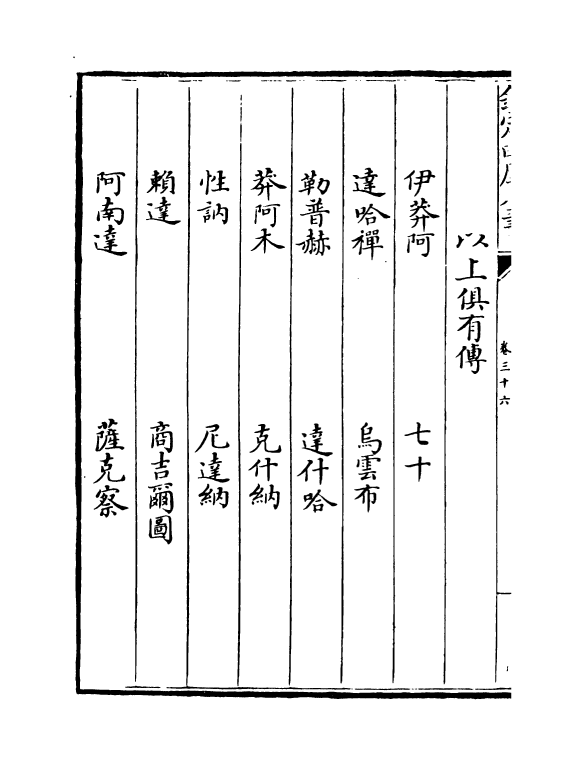 欽定四庫全書
卷三十六
以上俱有傳
伊莽阿　七十
達哈禪　烏雲布
勒普赫　達什哈
莽阿木　克什納
性訥　尼達納
賴達　商吉爾圖
阿南達　薩克察